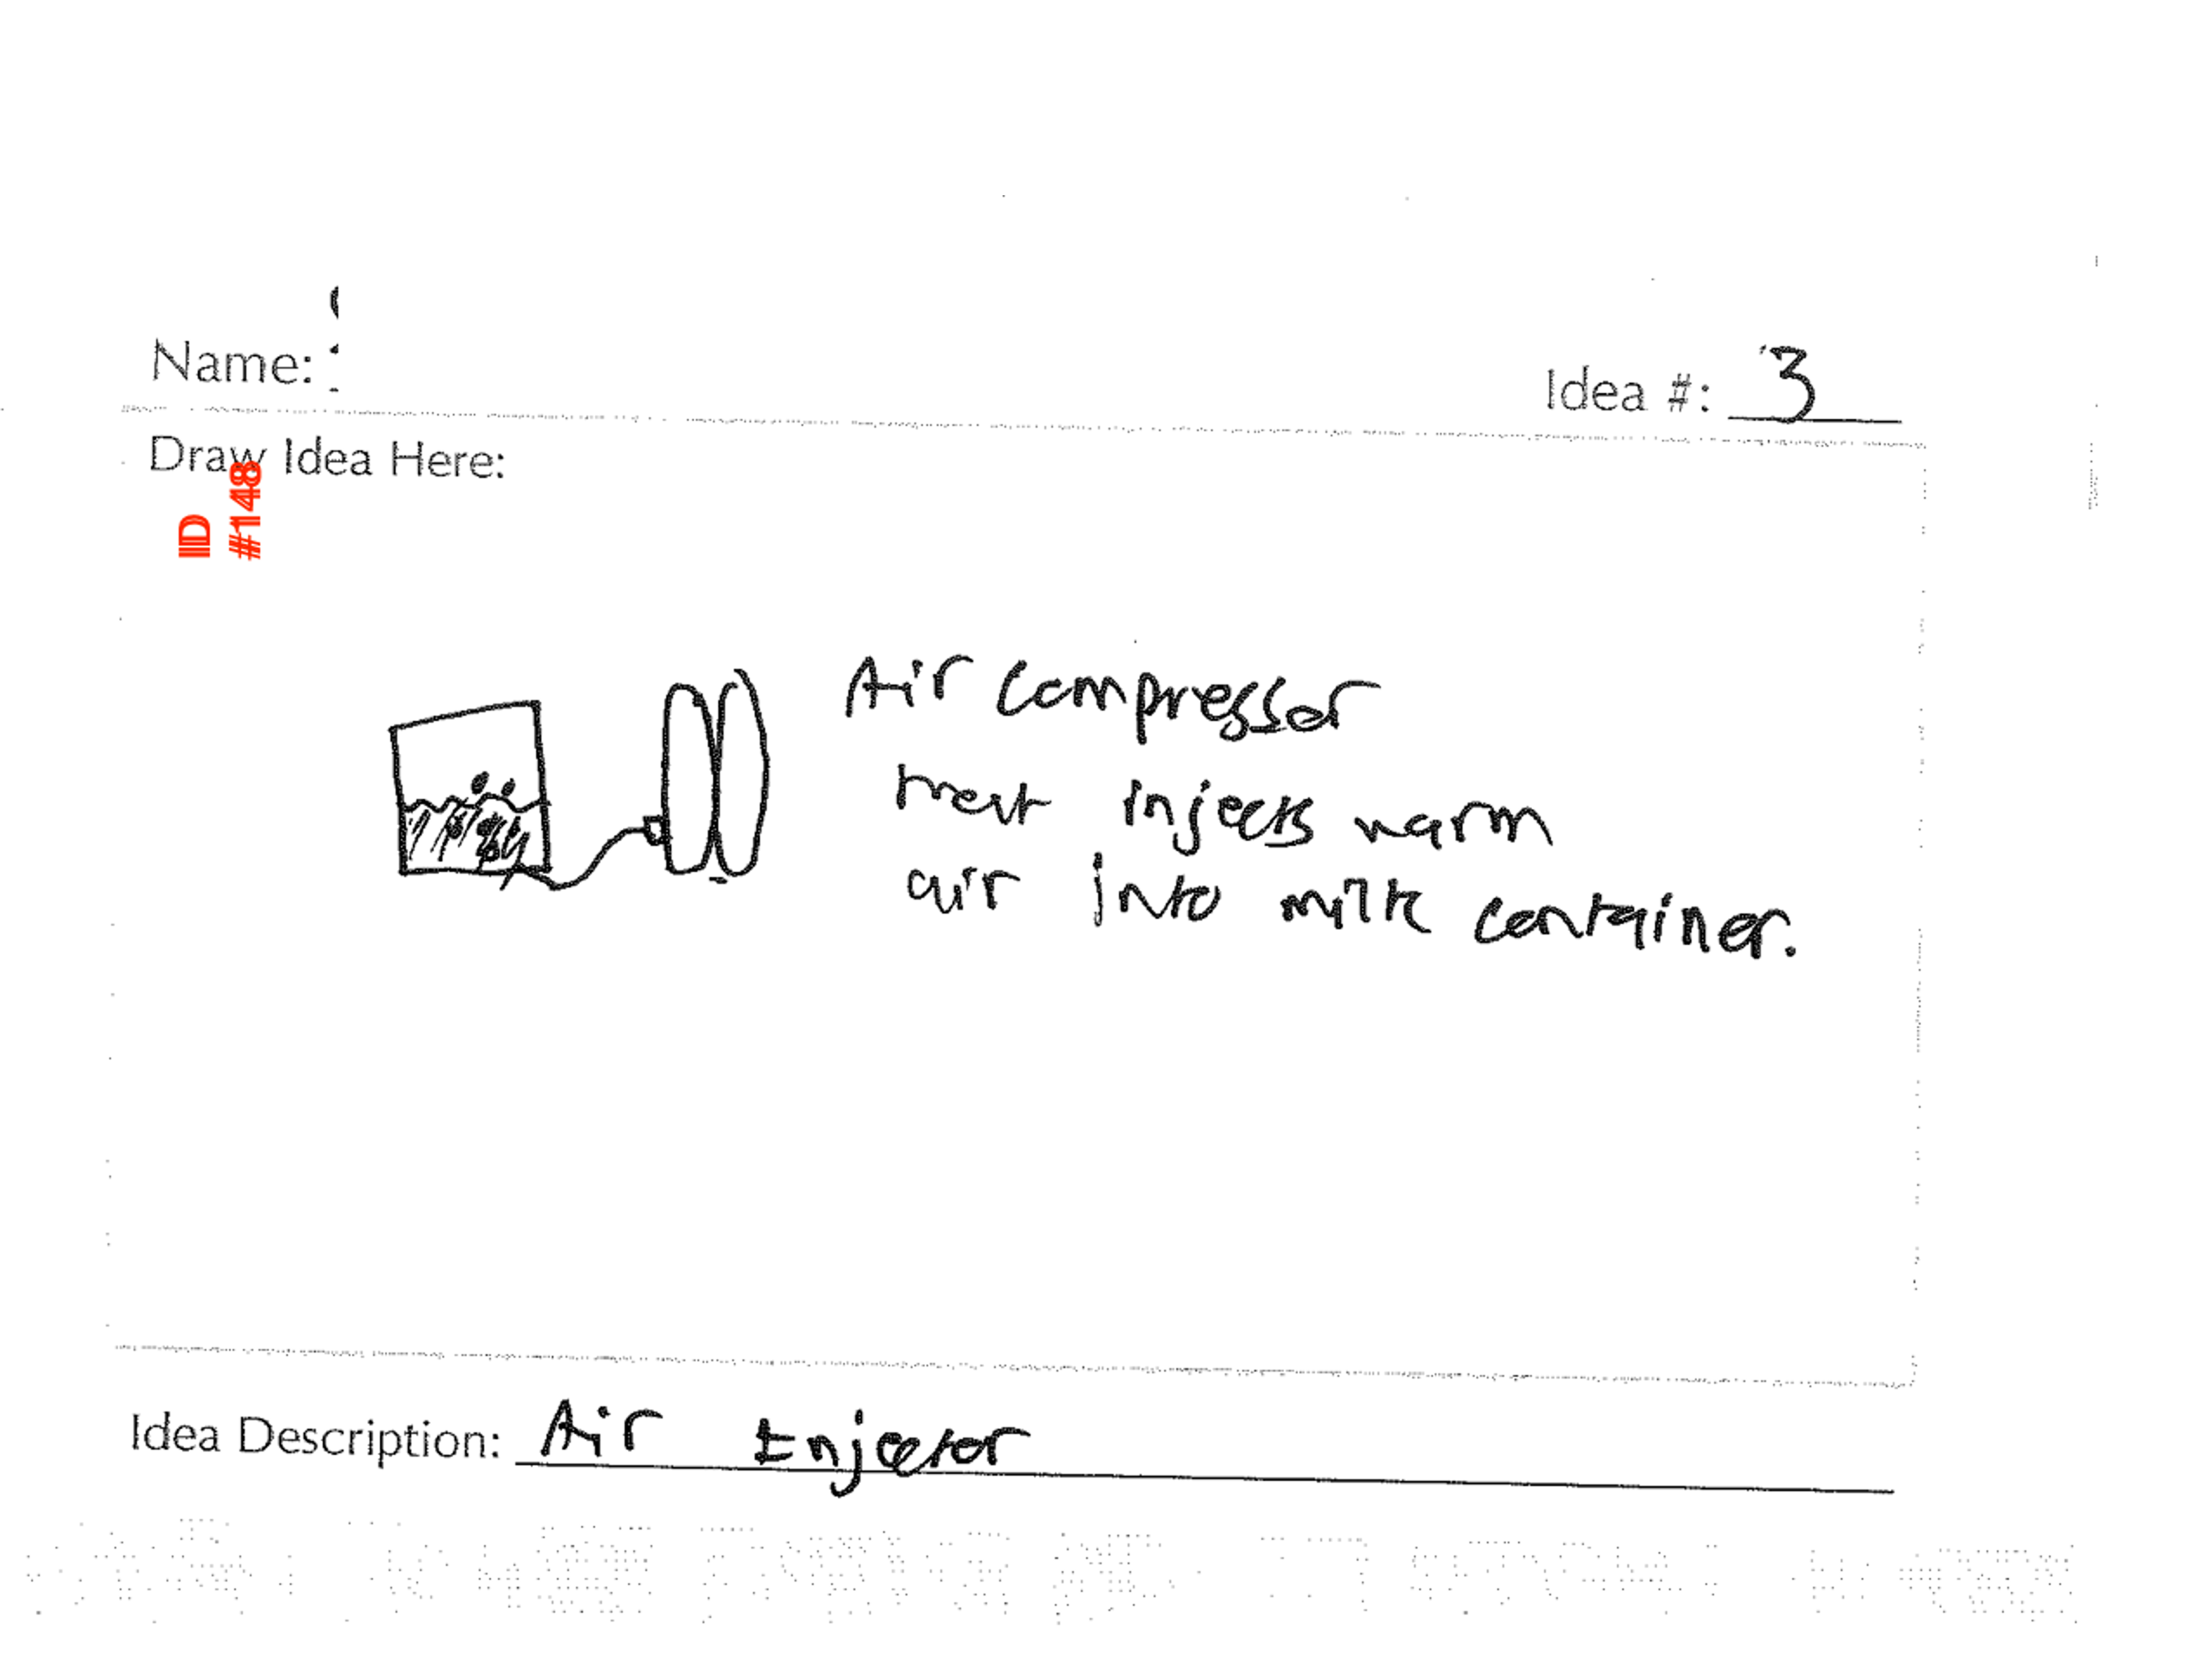 Name:
Idea #: 3
Draw Idea Here:
ID
#148
Air compressor
that injects warm
air into milk container.
Idea Description: Air Injector